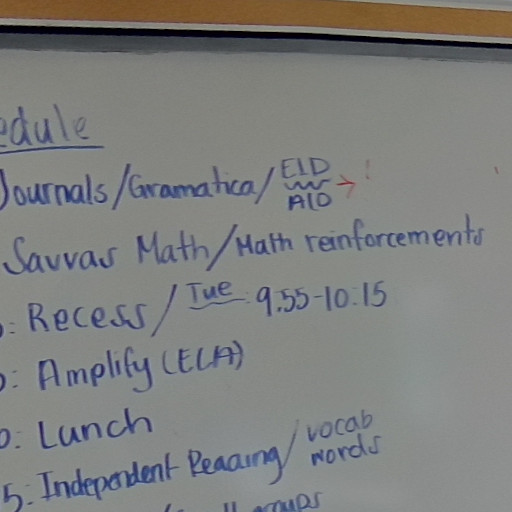 edule
Journals/Gramatica/ELD → !
ALD
Savvas Math/Math reinforcements
: Recess/Tue: 9:55-10:15
: Amplify (ELA)
0: Lunch
5: Independent Reading/vocab words
groups